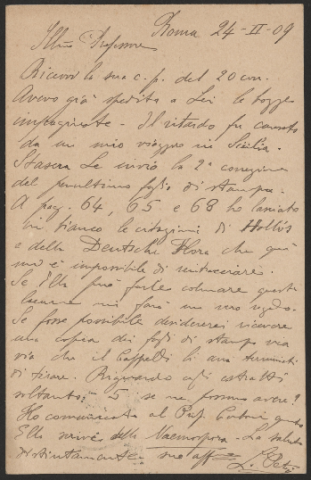 Roma 24-II-09
Illmo Professore
Ricevo la sua c.p. del 20 cm.
Avevo già spedita a Lei le bozze
impaginate. Il ritardo fu causato
da un mio viaggio in Sicilia.
Stasera Le invio la 2ª correzione
del penultimo foglio di stampa.
A pag. 64, 65 e 68 ho lasciato
in bianco le citazioni di
e della Deutsche Flora che qui
mi è impossibile di rintracciare.
Se Ella può farle colmare queste
lacune mi farà un vero regalo.
Se fosse possibile desidererei ricevere
una copia dei fogli di stampa via
via che il Cappelli li avrà
di tirare. Riguardo agli estratti
soltanto 5 se ne possono avere?
Ho comunicato al Prof. quanto
Ella scrive della Naemospora. La saluta
distintamente suo aff